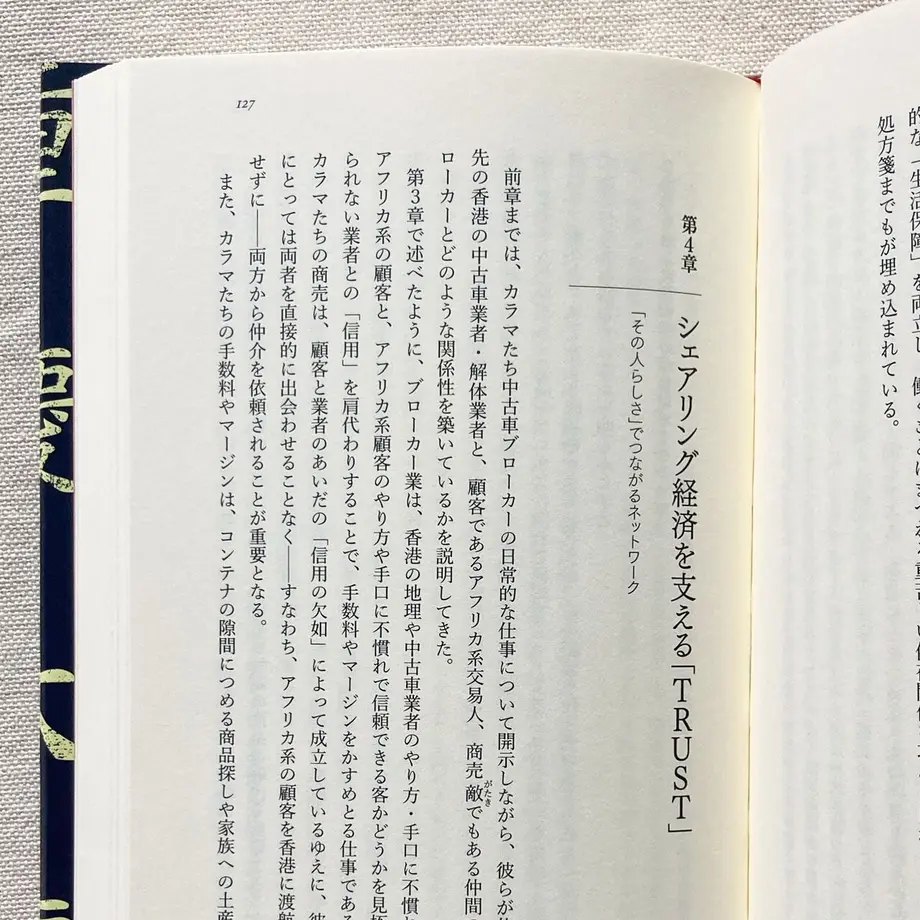 的な「生活保障」を両立し、
処方箋までもが埋め込まれている。
第4章
シェアリング経済を支える「TRUST」
「その人らしさ」でつながるネットワーク
前章までは、カラマたち中古車ブローカーの日常的な仕事について開示しながら、彼らが
先の香港の中古車業者・解体業者と、顧客であるアフリカ系交易人、商売敵がたきでもある仲間
ローカーとどのような関係性を築いているかを説明してきた。
第3章で述べたように、ブローカー業は、香港の地理や中古車業者のやり方・手口に不慣
アフリカ系の顧客と、アフリカ系顧客のやり方や手口に不慣れで信頼できる客かどうかを見極
られない業者との「信用」を肩代わりすることで、手数料やマージンをかすめとる仕事であ
カラマたちの商売は、顧客と業者のあいだの「信用の欠如」によって成立しているゆえに、彼
にとっては両者を直接的に出会わせることなく――すなわち、アフリカ系の顧客を香港に渡航
せずに――両方から仲介を依頼されることが重要となる。
また、カラマたちの手数料やマージンは、コンテナの隙間につめる商品探しや家族への土産
127